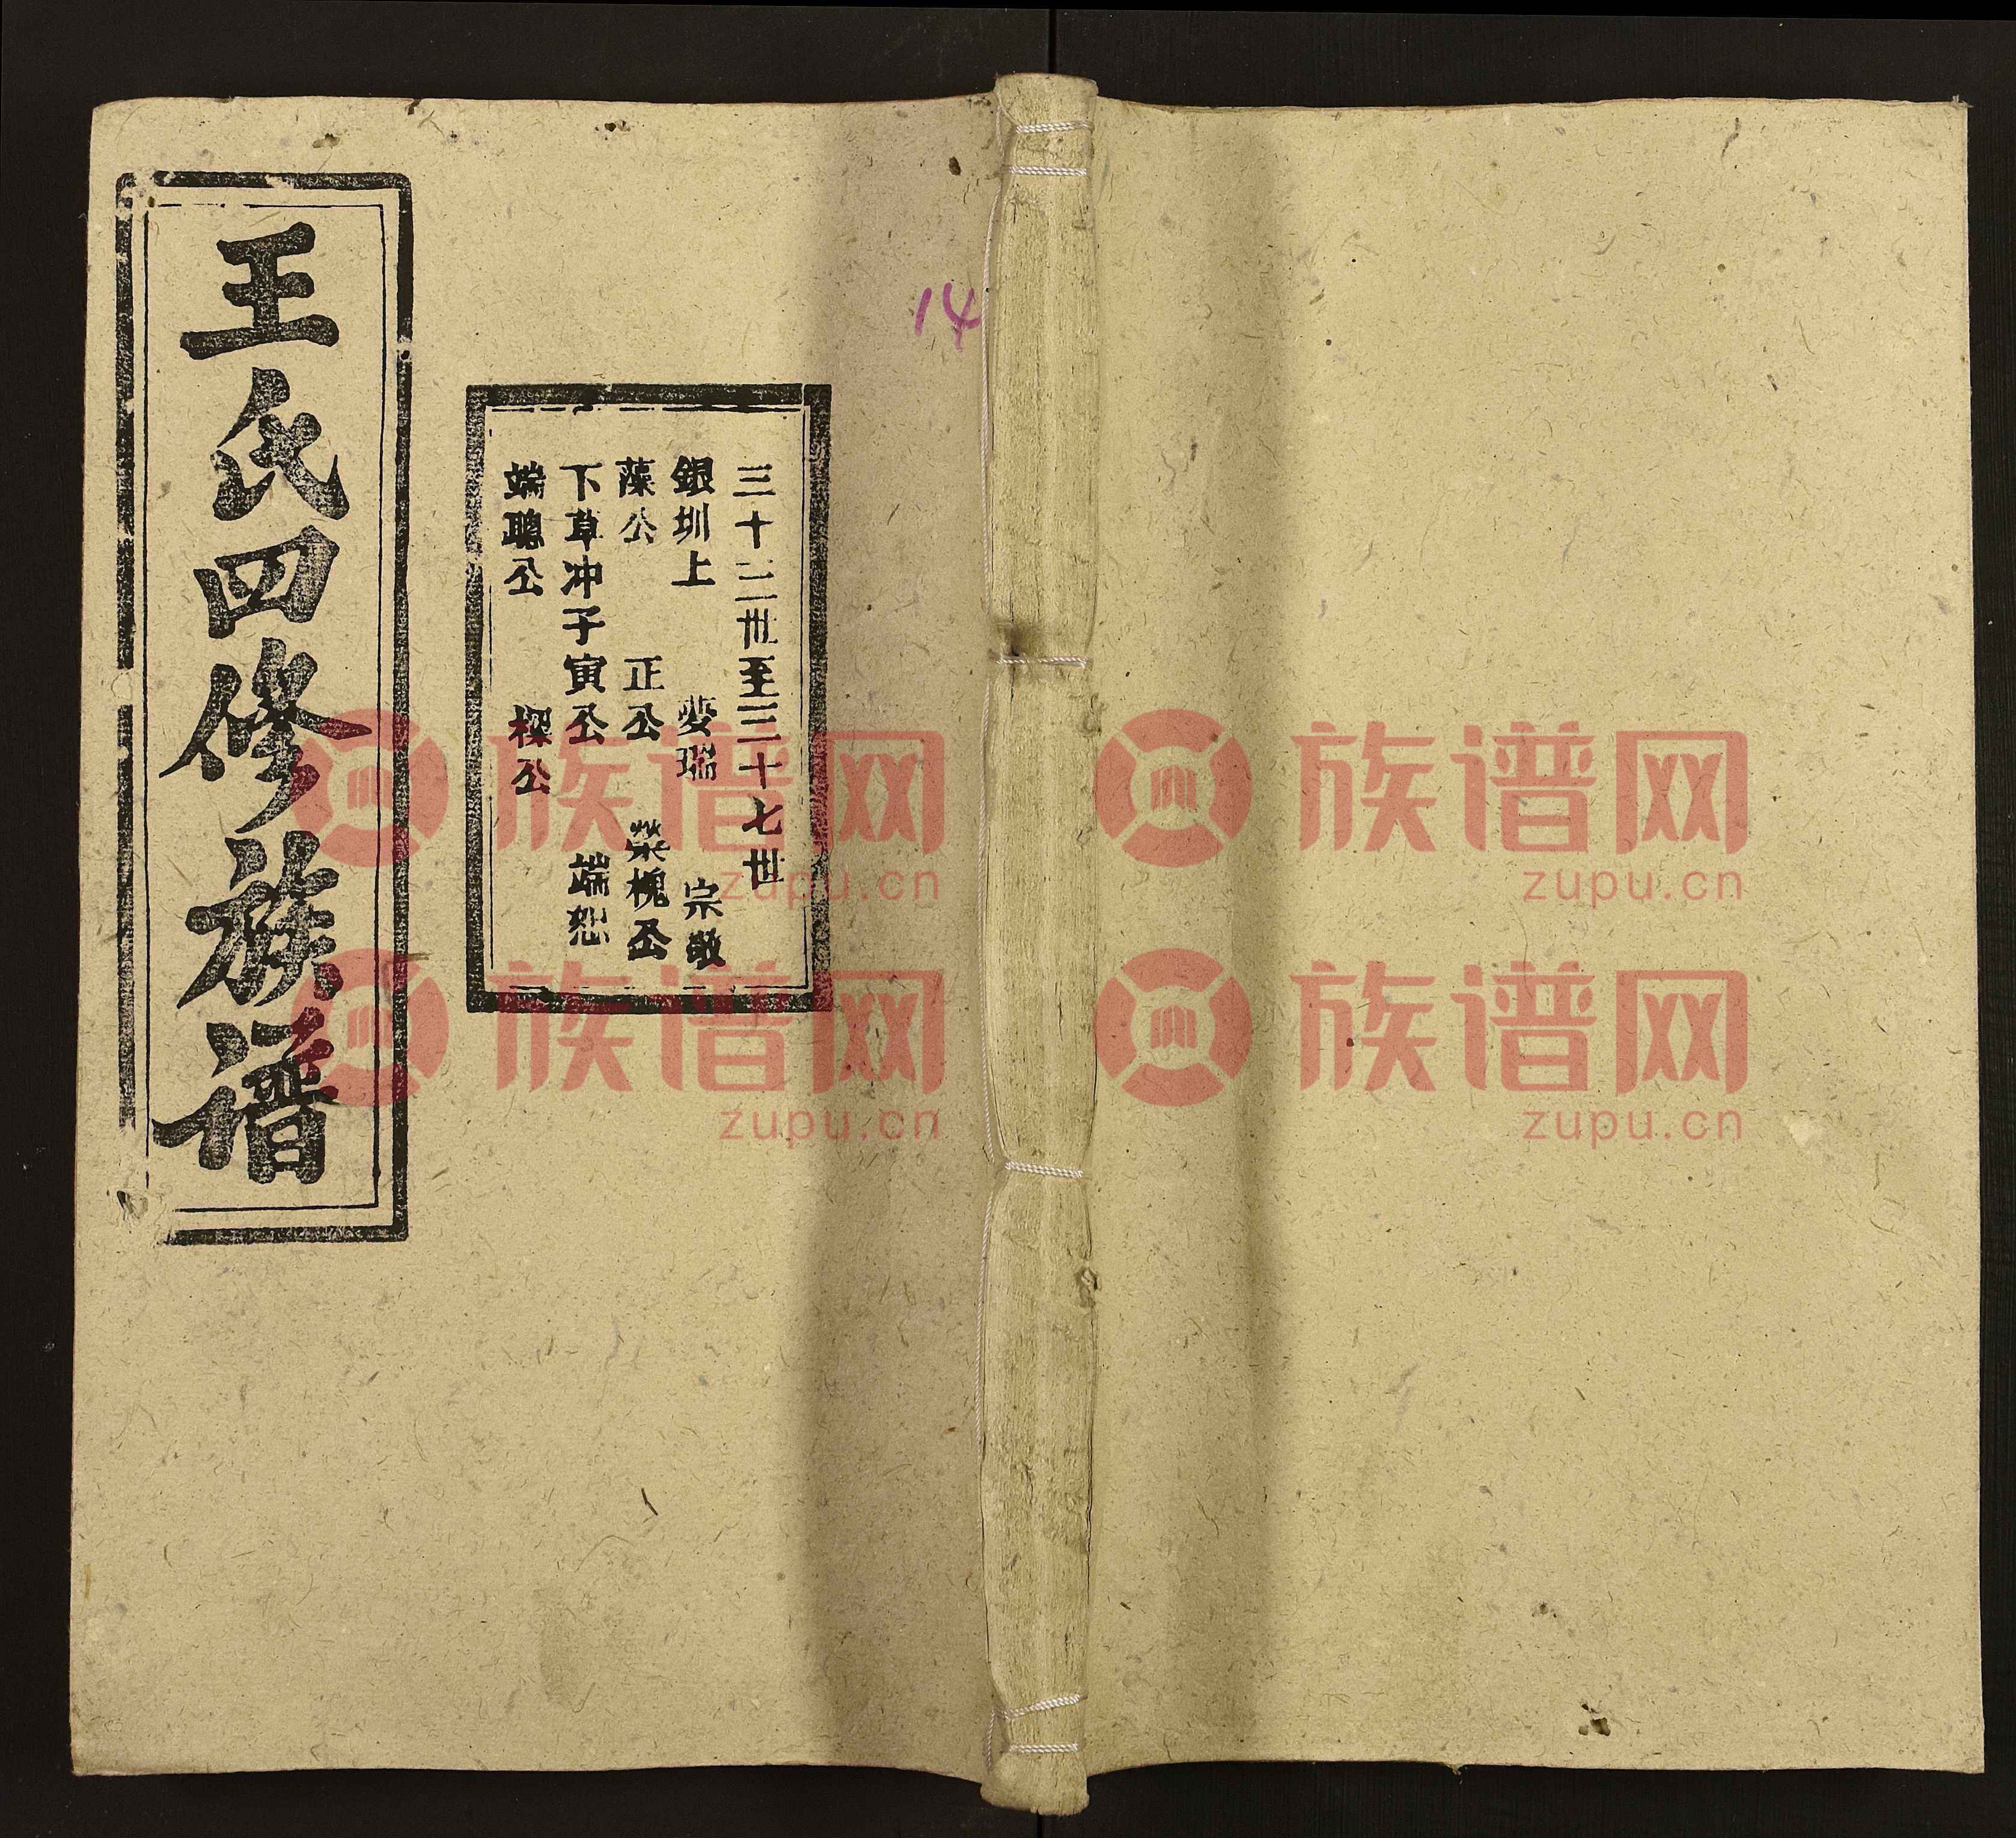 王氏四修族譜
三十二世至三十七世
銀圳上 斐瑞 宗敬
藻公 正公 榮槐公
下草冲子寅公 端恕
端聰公 櫟公
14
族谱网
zupu.cn
族谱网
zupu.cn
族谱网
zupu.cn
族谱网
zupu.cn